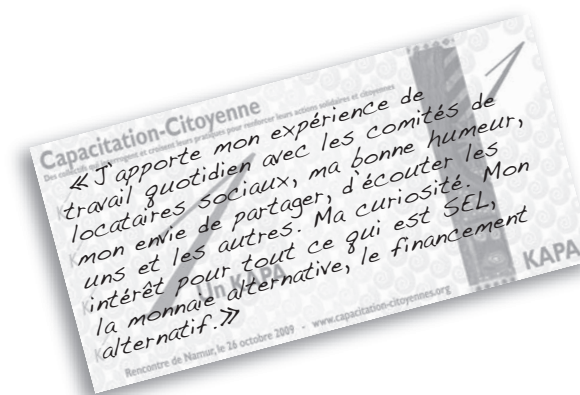 Capacitation-Citoyenne
Des collectifs qui interrogent et croisent leurs pratiques pour renforcer leurs actions solidaires et citoyennes
« J'apporte mon expérience de
travail quotidien avec les comités de
locataires sociaux, ma bonne humeur,
mon envie de partager, d'écouter les
uns et les autres. Ma curiosité. Mon
intérêt pour tout ce qui est SEL,
la monnaie alternative, le financement
alternatif.»
Un KAPA
KAPA
Rencontre de Namur, le 26 octobre 2009 - www.capacitation-citoyennes.org